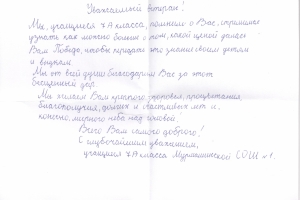 Уважаемый ветеран!
Мы, учащиеся 7А класса, помним о Вас, стремимся
узнать как можно больше о том, какой ценой далась
Вам Победа, чтобы передать это знание своим детям
и внукам.
Мы от всей души благодарим Вас за этот
бесценный дар.
Мы желаем Вам крепкого здоровья, процветания,
благополучия, долгих и счастливых лет и,
конечно, мирного неба над головой.
Всего Вам самого доброго!
С глубочайшим уважением,
учащиеся 7А класса Мурашинской СОШ №1.